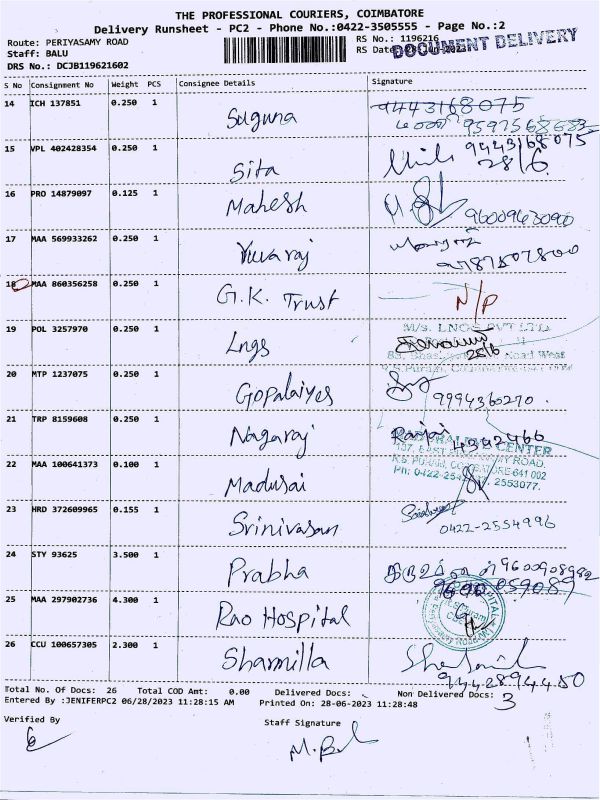 THE PROFESSIONAL COURIERS, COIMBATORE
Delivery Runsheet - PC2 - Phone No.:0422-3505555 - Page No.:2
Route: PERIYASAMY ROAD
RS No.: 1196216
Staff: BALU
RS Date
DOCUMENT DELIVERY
DRS No.: DCJB119621602
S No Consignment No Weight PCS Consignee Details Signature
14 ICH 137851 0.250 1 Suguna 9443168075
9597568683
15 VPL 402428354 0.250 1 Sita 9443168075
28/6
16 PRO 14879097 0.125 1 Mahesh 9600963090
17 MAA 569933262 0.250 1 Yuvaraj 9787507800
18 MAA 860356258 0.250 1 G.K. Trust N/P
19 POL 3257970 0.250 1 Lngs
M/s. LNGS PVT LTD
28/6
Road West
20 MTP 1237075 0.250 1 Gopalaiyes 9994360270.
21 TRP 8159608 0.250 1 Nagaraj 4392466
CENTER
ROAD,
22 MAA 100641373 0.100 1 Madusai
R.S. PURAM, COIMBATORE-641 002
2553077.
23 HRD 372609965 0.155 1 Srinivasan 0422-2554996
24 STY 93625 3.500 1 Prabha 9600908992
9600 059089
25 MAA 297902736 4.300 1 Rao Hospital
26 CCU 100657305 2.300 1 Sharmilla
9442894450
Total No. Of Docs: 26 Total COD Amt: 0.00 Delivered Docs: Non Delivered Docs: 3
Entered By :JENIFERPC2 06/28/2023 11:28:15 AM Printed On: 28-06-2023 11:28:48
Verified By
Staff Signature